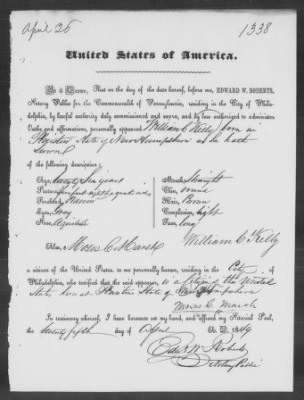 April 25
1338
United States of America.
Be it Known, That on the day of the date hereof, before me, EDWARD W. ROBERTS,
Notary Public for the Commonwealth of Pennsylvania, residing in the City of Phila-
delphia, by lawful authority duly commissioned and sworn, and by law authorized to administer
Oaths and affirmations, personally appeared William C Kelly born in
State of New Hampshire as he hath
Sworn
of the following description:
Age, twenty six years
Stature, five feet
Forehead, Medium
Eyes, Grey
Nose,
Mouth, Straight
Chin,
Hair, Brown
Complexion, light
Face, long
Also, Moses C. Marsh
William C Kelly
a citizen of the United States, to me personally known, residing in the City of
Philadelphia, who testified that the said appearer, is a citizen of the United
States born at State of New Hampshire
Moses C. Marsh
In testimony whereof, I have hereunto set my hand, and affixed my Notarial Seal,
the twenty fifth day of April A. D. 1849
Edw. W. Roberts
Notary Public